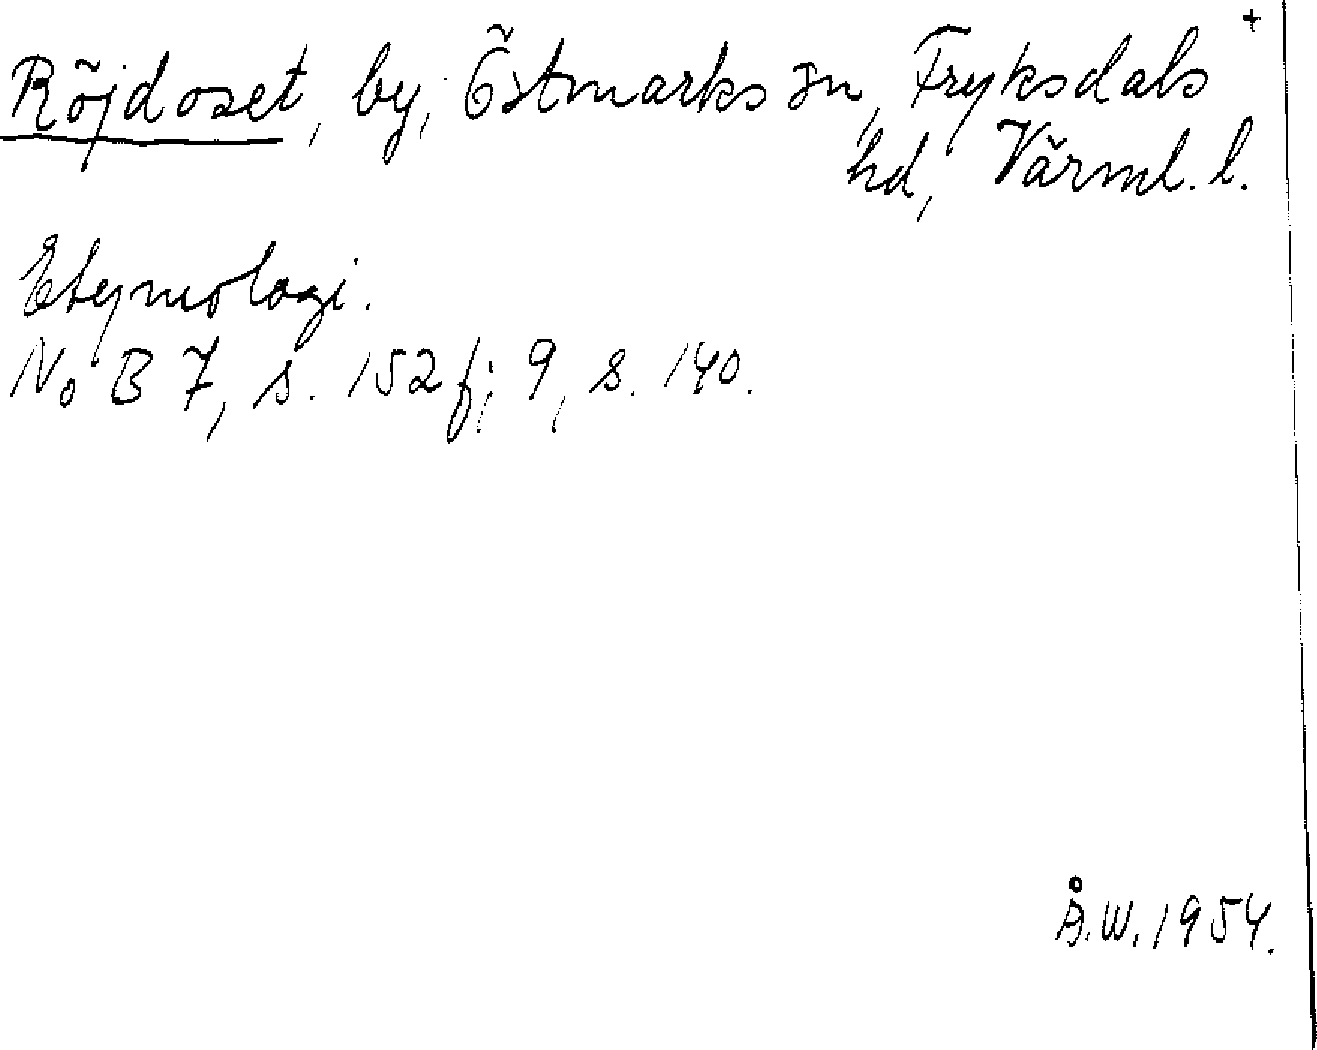 Röjdoset, by, Östmarks sn, Fryksdals +
hd, Värml. l.
Etymologi.
NoB 7, s. 152 f; 9, s. 140.
Å.W. 1954.